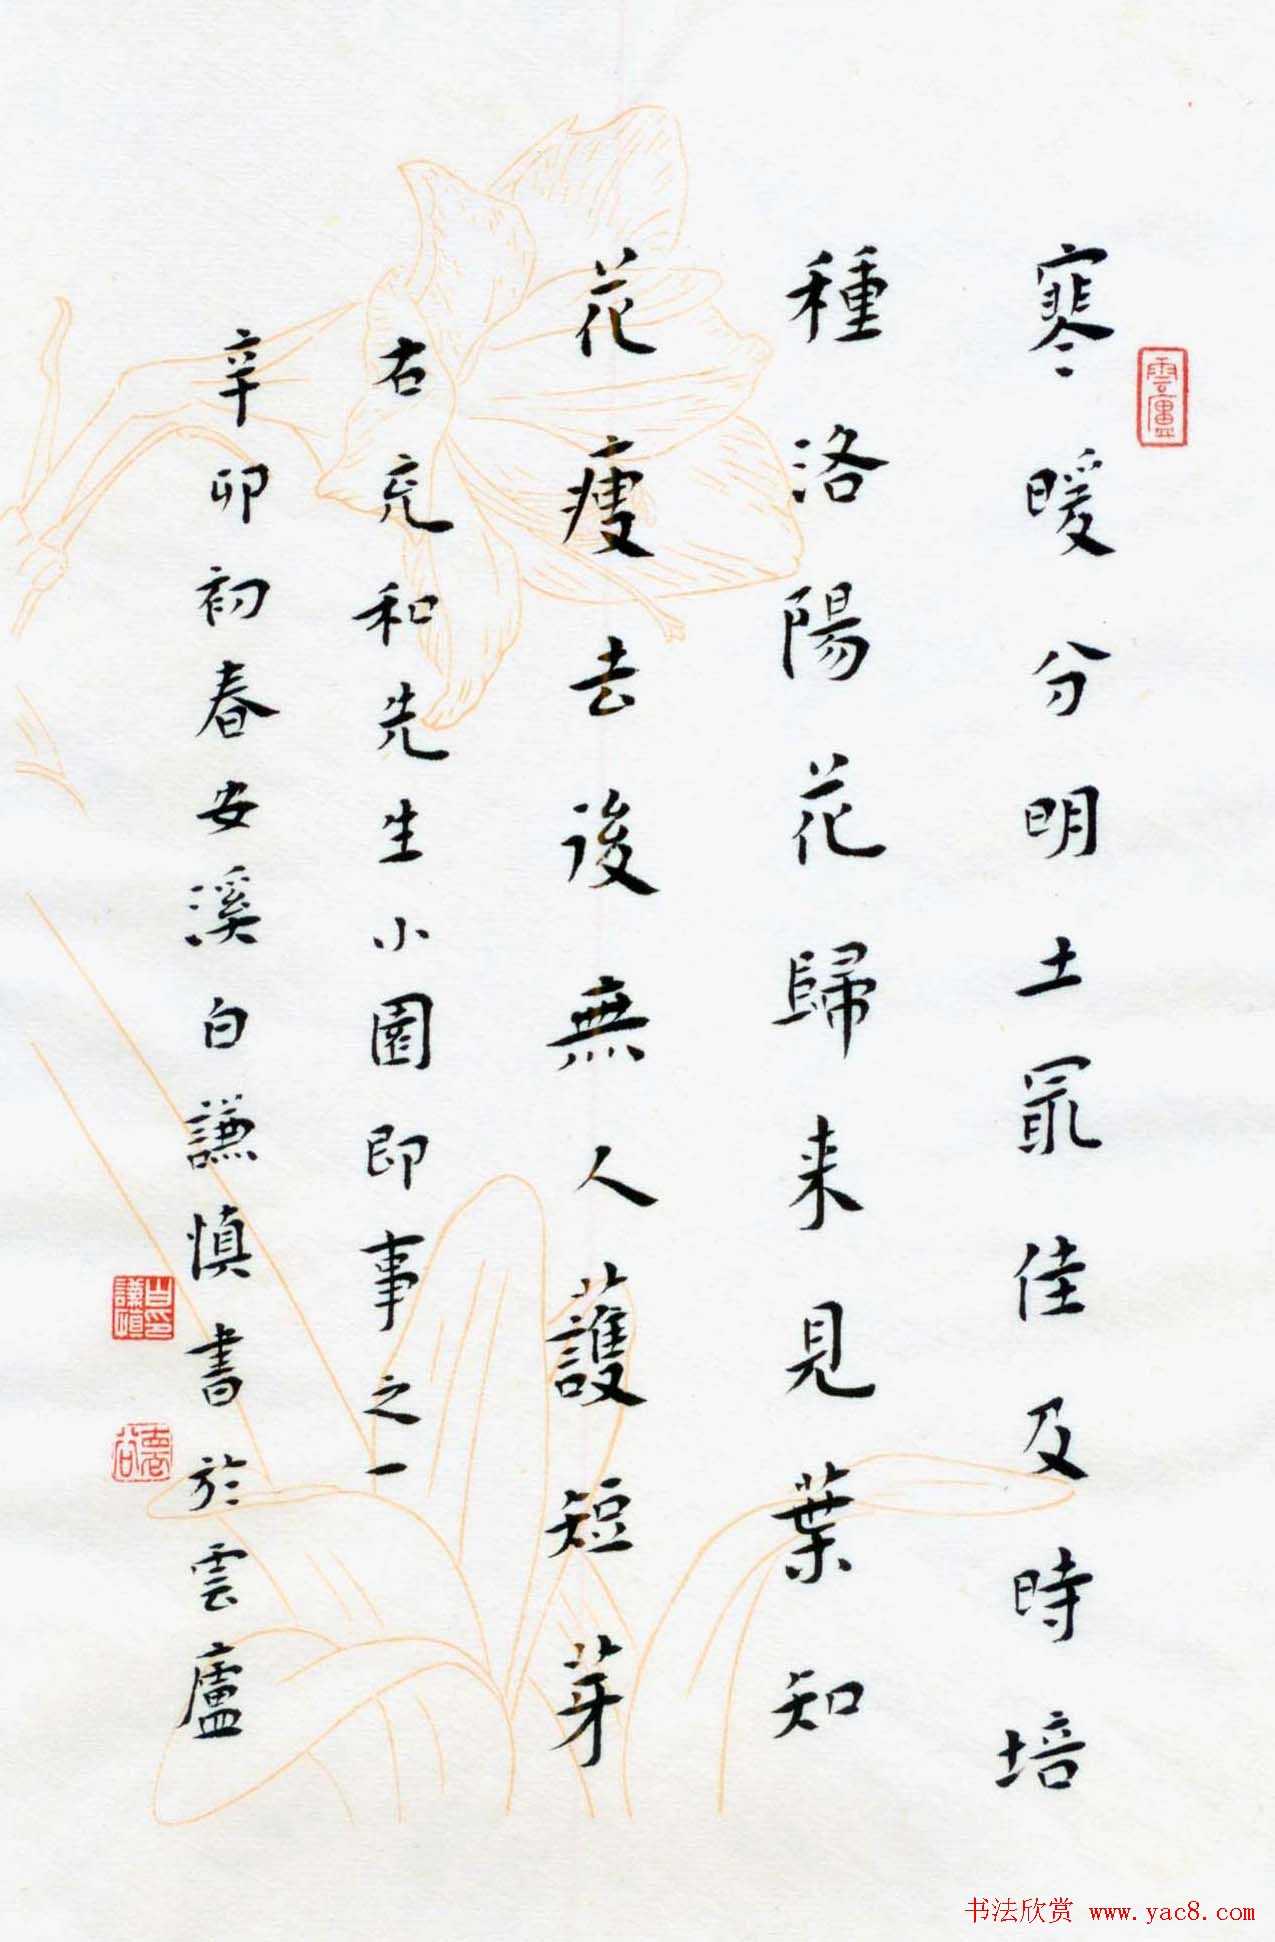 雲廬
寒暖分明土最佳及時培
種洛陽花歸来見葉知
花瘦去後無人護短芽
右充和先生小園即事之一
辛卯初春安溪白謙慎書於雲廬
白謙慎印
书法欣赏 www.yac8.com